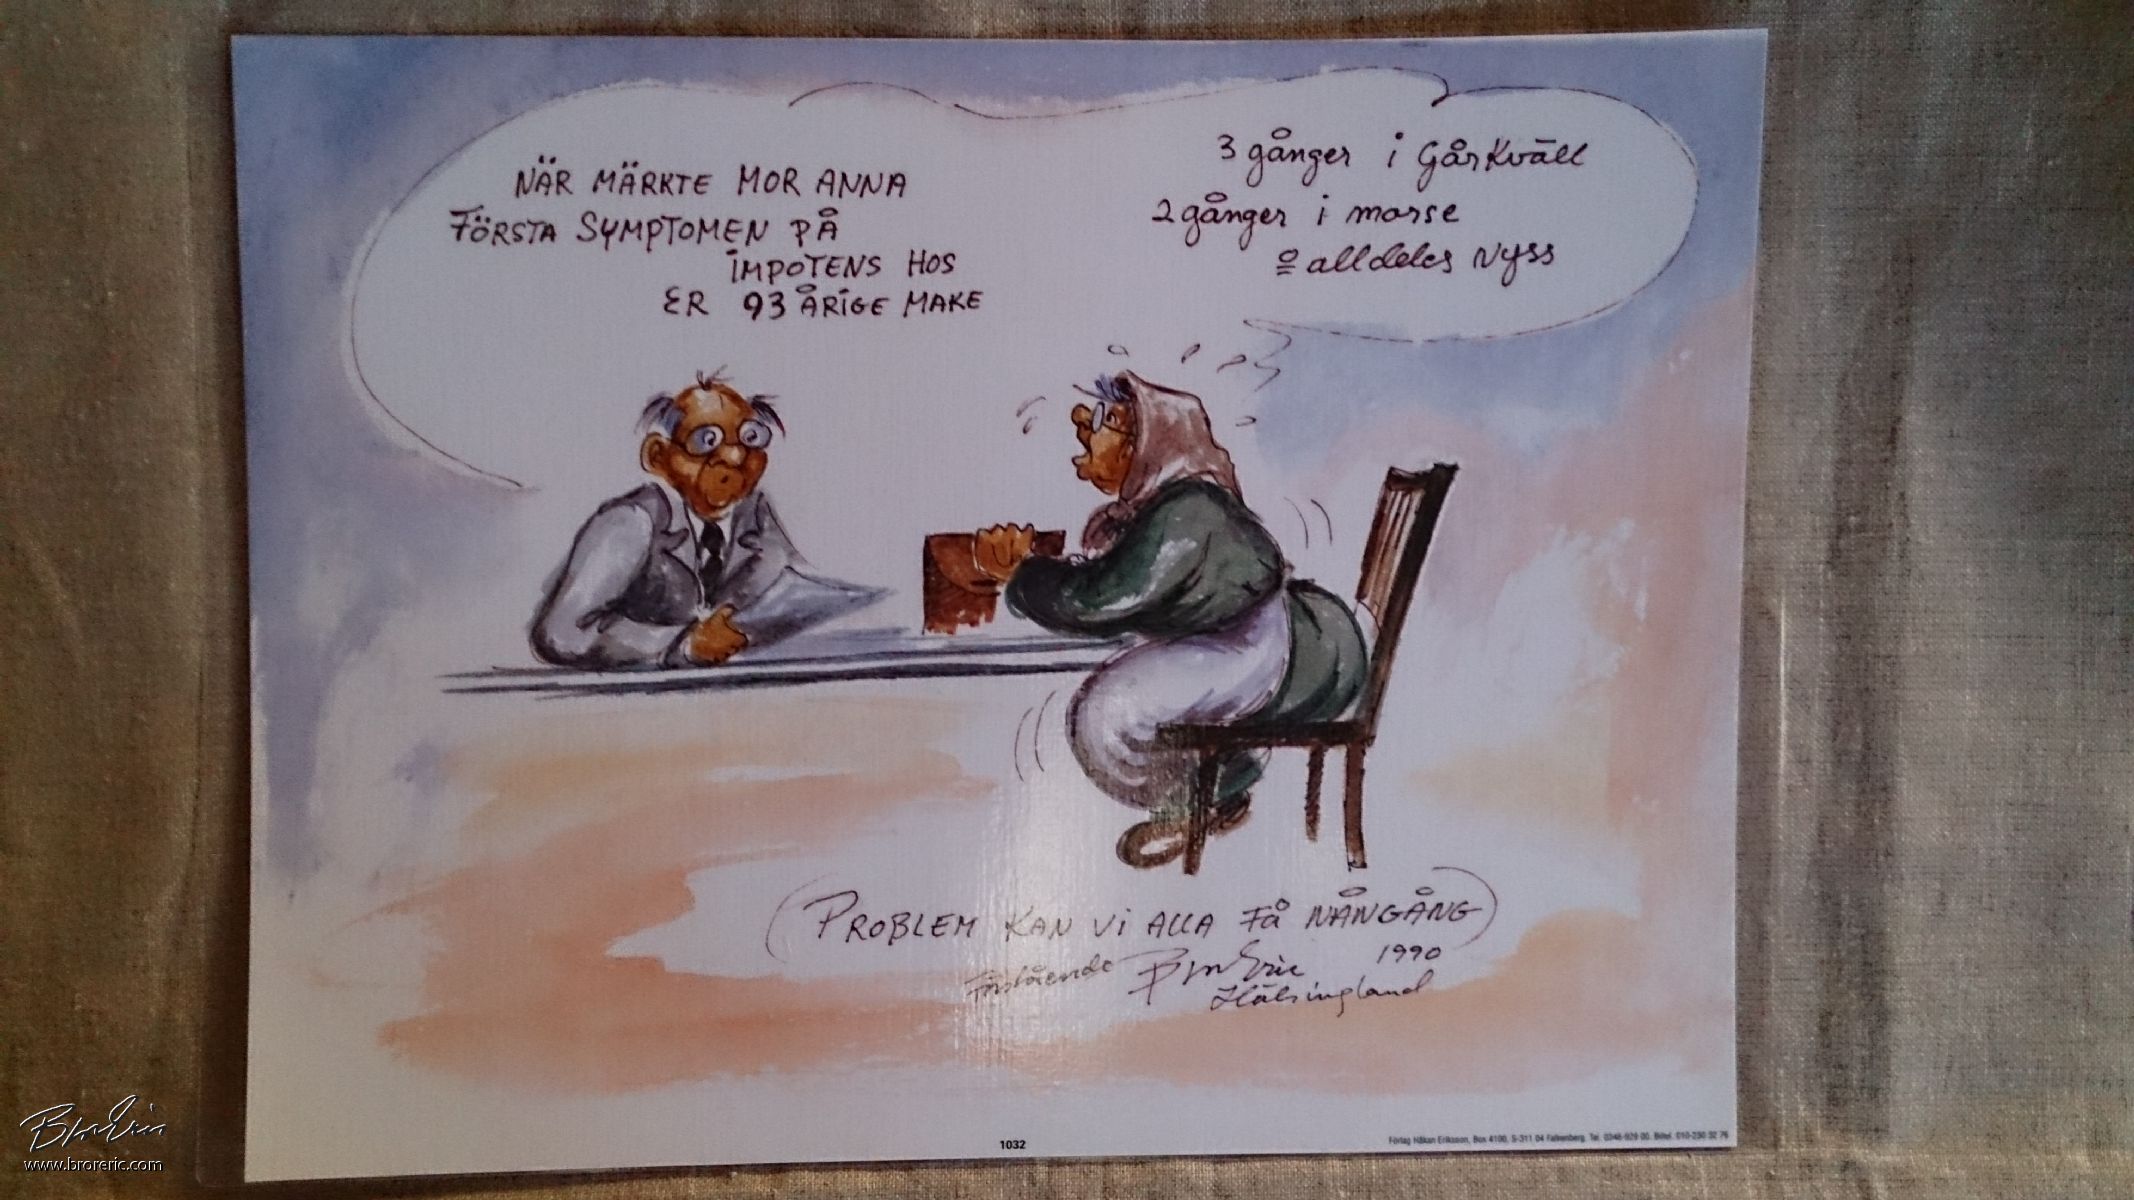 NÄR MÄRKTE MOR ANNA
FÖRSTA SYMPTOMEN PÅ
IMPOTENS HOS
ER 93 ÅRIGE MAKE
3 gånger i Går Kväll
2 gånger i morse
o alldeles Nyss
(PROBLEM KAN VI ALLA FÅ NÅNGÅNG)
Förstående BrorEric 1990
Hälsingland
1032
Förlag Håkan Eriksson, Box 4100, S-311 04 Falkenberg. Tel. 0346-929 00. Biltel. 010-230 32 76
BrorEric
www.broreric.com